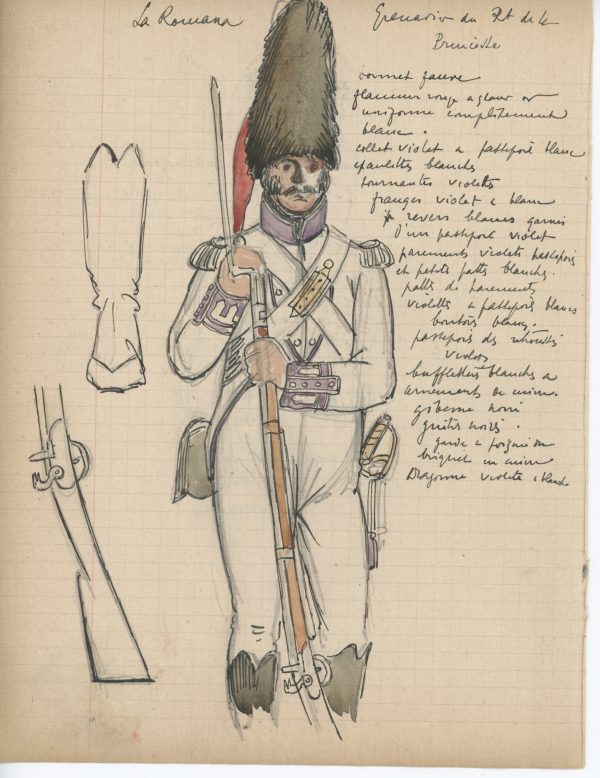 La Romana
Grenadier du Rt de la
Princesse
bonnet fauve
flamme rouge a gland or
uniforme complètement
blanc.
collet violet a passepoil blanc
epaulettes blanches
tournantes violettes
franges violet & blanc
revers blancs garnis
d'un passepoil violet
parements violets passepoils
et petite patte blanche.
pattes de parements
violettes a passepoils blancs
boutons blancs.
passepoils des retroussis
violets
buffleteries blanches a
ornements de cuivre.
giberne noire
guêtres noires.
garde a poignée du
briquet en cuivre
Dragonne violette & blanche